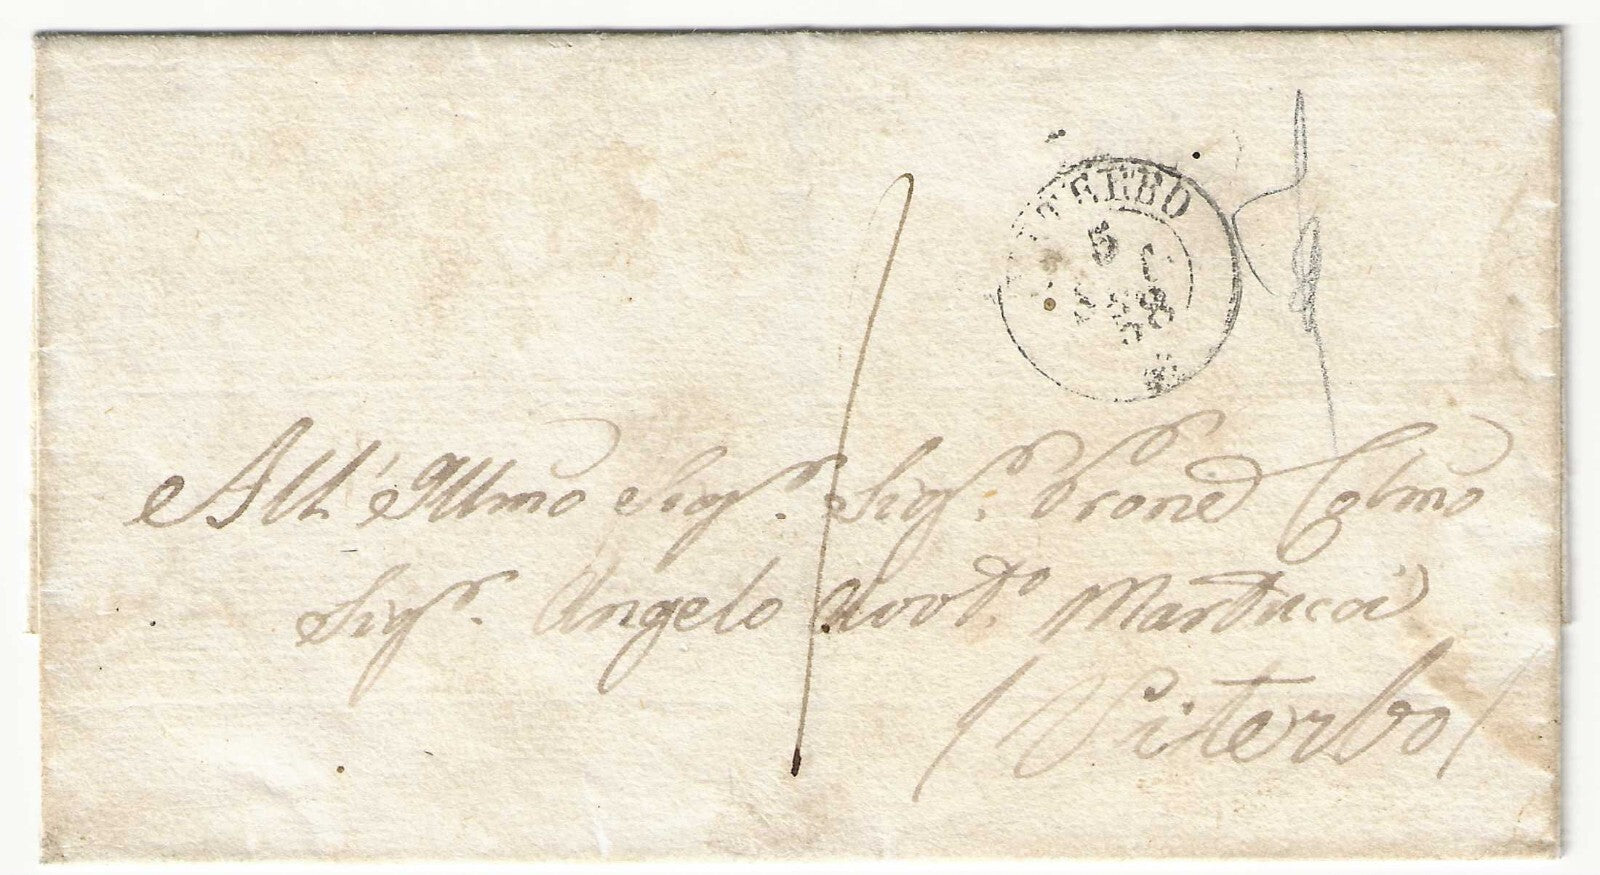 VITERBO
5
All' Illmo Sigr. Sigr. Prone Colmo
Sigr. Angelo Avvto. Martucci
(Viterbo)